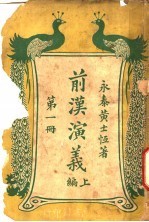 永泰黃士恆著
前漢演義上編
第一冊